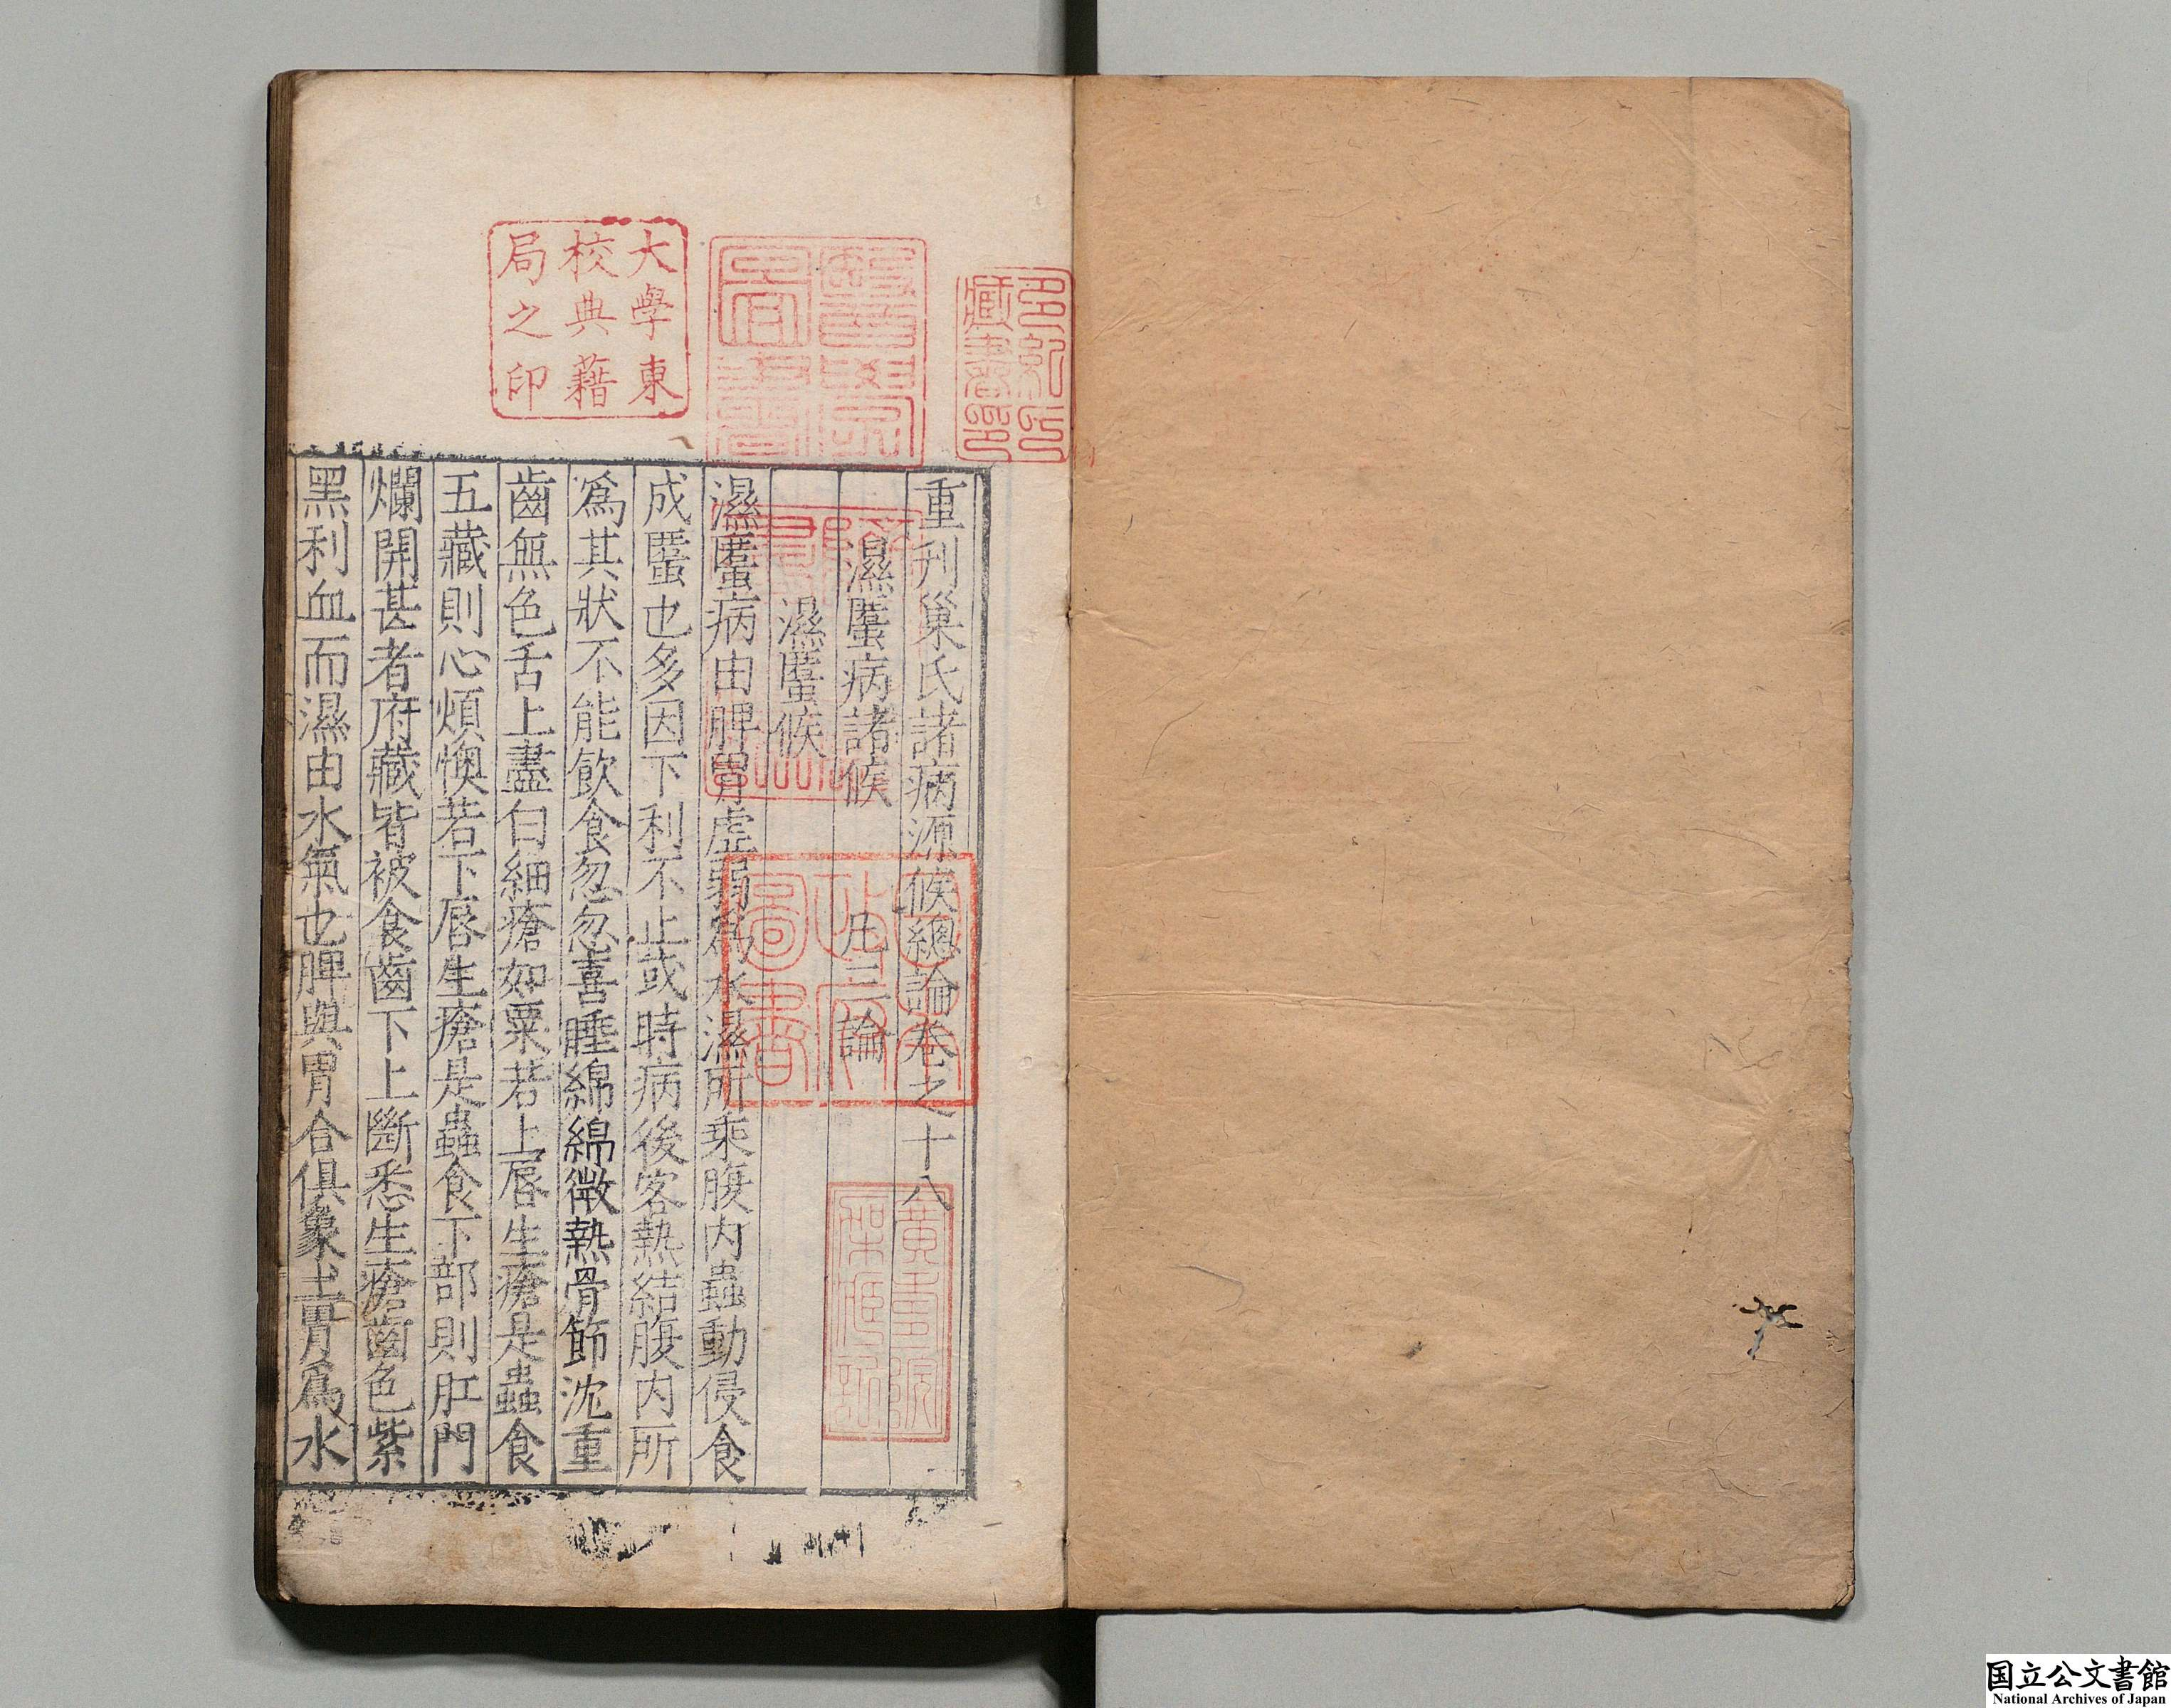 重刋巢氏諸病源候總論卷之十八
濕䘌病諸候　凡三論
濕䘌候
濕䘌病由脾胃虛弱爲水濕所乘腹内蟲動侵食
成䘌也多因下利不止或時病後客熱結腹内所
爲其狀不能飲食忽忽喜睡綿綿微熱骨節沈重
齒無色舌上盡白細瘡如粟若上唇生瘡是蟲食
五藏則心煩懊若下唇生瘡是蟲食下部則肛門
爛開甚者府藏皆被食齒下上斷悉生瘡齒色紫
黑利血而濕由水氣也脾與胃合俱象土胃爲水
大學東
校典藉
局之印
多紀氏
藏書印
醫學
圖書
日本
政府
圖書
国立公文書館
National Archives of Japan